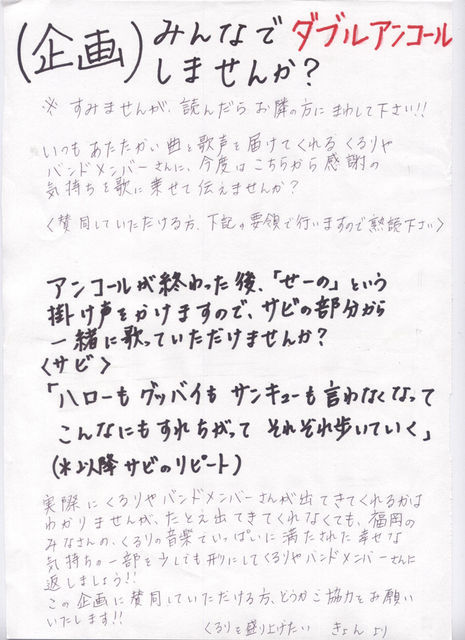 (企画)みんなでダブルアンコール
しませんか?
※ すみませんが、読んだらお隣の方にまわして下さい!!
いつもあたたかい曲と歌声を届けてくれるくるりや
バンドメンバーさんに、今度はこちらから感謝の
気持ちを歌に乗せて伝えませんか?
〈賛同していただける方、下記の要領で行いますので熟読下さい〉
アンコールが終わった後、「せーの」という
掛け声をかけますので、サビの部分から
一緒に歌っていただけませんか?
〈サビ〉
「ハローもグッバイもサンキューも言わなくなって
こんなにもすれちがって それぞれ歩いていく」
(※以降サビのリピート)
実際にくるりやバンドメンバーさんが出てきてくれるかは
わかりませんが、たとえ出てきてくれなくても、福岡の
みなさんの、くるりの音楽でいっぱいに満たされた幸せな
気持ちの一部を少しでも形にしてくるりやバンドメンバーさんに
返しましょう!!
この企画に賛同していただける方、どうかご協力をお願い
いたします!!
くるりを盛り上げたい きょん より